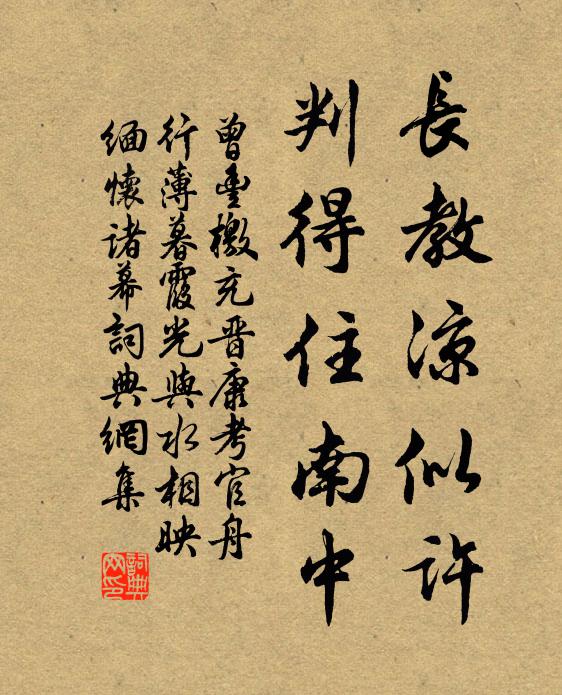 長教涼似許
判得住南中
曾豐檄充晋康考官舟
行薄暮霞光與水相映
缅懷诸幕詞典網集
詞典
网印